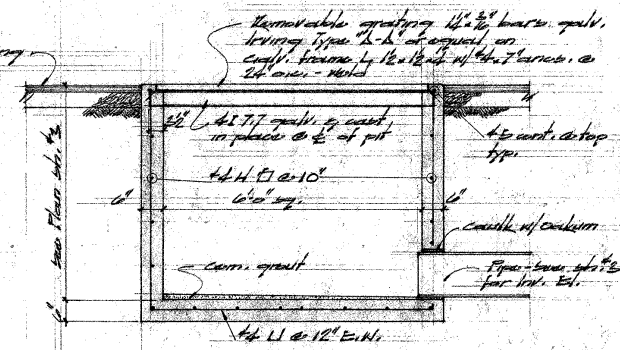 Removable grating 1¼"x 3/16" bars galv.
Irving Type "A-A" or equal, on
galv. frame L 1½x1½x¼ w/ #4x7" ancs. @
24" o.c. - weld
2½"
4I7.7 galv. & cast
in place @ ℄ of pit
#5 cont. @ top
typ.
#4 @ 10"
6"
6'0" sq.
6"
see Plan sh. #3
caulk w/oakum
cem. grout
Pipe-see sh. #3
for Inv. El.
6"
#4 @ 12" E.W.